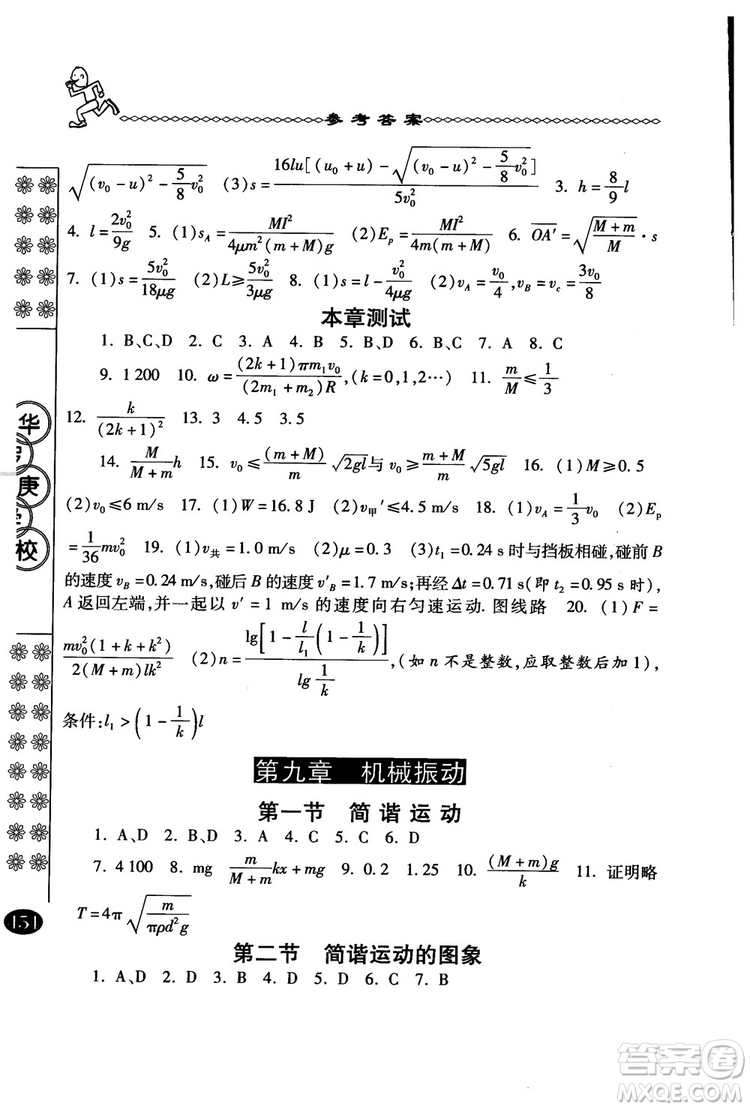 参考答案
√((v₀-u)²-5/8v₀²) (3)s=16lu[(u₀+u)-√((v₀-u)²-5/8v₀²)]/5v₀² 3. h=8/9 l
4. l=2v₀²/9g 5. (1)s_A=MI²/4μm²(m+M)g (2)E_p=MI²/4m(m+M) 6. OA′=√((M+m)/M)·s
7. (1)s=5v₀²/18μg (2)L≥5v₀²/3μg 8. (1)s=l-v₀²/4μg (2)v_A=v₀/4,v_B=v_c=3v₀/8
本章测试
1. B、C、D 2. C 3. A 4. B 5. B 6. B、C、D 7. A 8. C
9. 1 200 10. ω=(2k+1)πm₁v₀/(2m₁+m₂)R,(k=0,1,2…) 11. m/M≤1/3
12. k/(2k+1)² 13. 3 4.5 3.5
14. M/(M+m) h 15. v₀≤(m+M)/m √2gl与v₀≥(m+M)/m √5gl 16. (1)M≥0.5
(2)v₀≤6 m/s 17. (1)W=16.8 J (2)v甲′≤4.5 m/s 18. (1)v_A=1/3v₀ (2)E_p
=1/36mv₀² 19. (1)v共=1.0 m/s (2)μ=0.3 (3)t₁=0.24 s时与挡板相碰,碰前 B
的速度 v_B=2.2 m/s,碰后 B 的速度 v′_B=1.7 m/s;再经 Δt=0.71 s(即 t₂=0.95 s)时,
A 返回左端,并一起以 v′=1 m/s 的速度向右匀速运动. 图线路 20. (1)F=
mv₀²(1+k+k²)/2(M+m)lk² (2)n=lg[1-l/l₁(1-1/k)]/lg 1/k,(如 n 不是整数,应取整数部分加 1),
条件:l₁>(1-1/k)l
第九章 机械振动
第一节 简谐运动
1. A、D 2. C、D 3. A 4. C 5. C 6. D
7. 4 100 8. mg m/(M+m) kx+mg 9. 0.2 1.25 10. (M+m)g/k 11. 证明略
T=4π√(m/πρd²g)
第二节 简谐运动的图象
1. A、D 2. A、D 3. B 4. D 5. D 6. C 7. B
华
罗
庚
学
校
151
答案圈
MXQE.COM